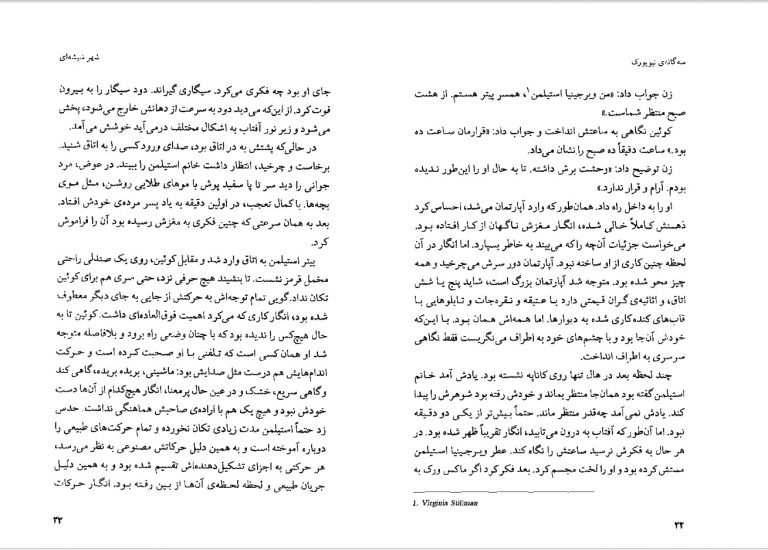 سه‌گانه‌ی نیویورک
زن جواب داد: «من ویرجینیا استیلمن۱، همسر پیتر هستم. از هشت
صبح منتظر شماست.»
کوئین نگاهی به ساعتش انداخت و جواب داد: «قرارمان ساعت ده
بود.» ساعت دقیقاً ده صبح را نشان می‌داد.
زن توضیح داد: «وحشت برش داشته. تا به حال او را این‌طور ندیده
بودم. آرام و قرار ندارد.»
او را به داخل راه داد. همان‌طور که وارد آپارتمان می‌شد، احساس کرد
ذهنش کاملاً خالی شده، انگار مغزش ناگهان از کار افتاده بود.
می‌خواست جزئیات آن‌چه را که می‌بیند به خاطر بسپارد. اما انگار در آن
لحظه چنین کاری از او ساخته نبود. آپارتمان دور سرش می‌چرخید و همه
چیز محو شده بود. متوجه شد آپارتمان بزرگ است، شاید پنج یا شش
اتاق، و اثاثیه‌ی گران قیمتی دارد با عتیقه و نقره‌جات و تابلوهایی با
قاب‌های کنده‌کاری شده به دیوارها. اما همه‌اش همان بود. با این‌که
خودش آن‌جا بود و با چشم‌های خود به اطراف می‌نگریست فقط نگاهی
سرسری به اطراف انداخت.
چند لحظه بعد در هال تنها روی کاناپه نشسته بود. یادش آمد خانم
استیلمن گفته بود همان‌جا منتظر بماند و خودش رفته بود شوهرش را پیدا
کند. یادش نمی‌آمد چه‌قدر منتظر ماند. حتماً بیش‌تر از یکی دو دقیقه
نبود. اما آن‌طور که آفتاب به درون می‌تابید، انگار تقریباً ظهر شده بود. در
هر حال به فکرش نرسید ساعتش را نگاه کند. عطر ویرجینیا استیلمن
مستش کرده بود و او را لخت مجسم کرد. بعد فکر کرد اگر ماکس ورک به
1. Virginia Stillman
۲۲
شهر شیشه‌ای
جای او بود چه فکری می‌کرد. سیگاری گیراند. دود سیگار را به بیرون
فوت کرد. از این‌که می‌دید دود به سرعت از دهانش خارج می‌شود، پخش
می‌شود و زیر نور آفتاب به اشکال مختلف درمی‌آید خوشش می‌آمد.
در حالی‌که پشتش به در اتاق بود، صدای ورود کسی را به اتاق شنید.
برخاست و چرخید، انتظار داشت خانم استیلمن را ببیند. در عوض، مرد
جوانی را دید سر تا پا سفید پوش با موهای طلایی روشن، مثل موی
بچه‌ها. با کمال تعجب، در اولین دقیقه به یاد پسر مرده‌ی خودش افتاد.
بعد به همان سرعتی که چنین فکری به مغزش رسیده بود آن را فراموش
کرد.
پیتر استیلمن به اتاق وارد شد و مقابل کوئین، روی یک صندلی راحتی
مخمل قرمز نشست. تا بنشیند هیچ حرفی نزد، حتی سری هم برای کوئین
تکان نداد. گویی تمام توجه‌اش به حرکتش از جایی به جای دیگر معطوف
شده بود، انگار کاری که می‌کرد اهمیت فوق‌العاده‌ای داشت. کوئین تا به
حال هیچ‌کس را ندیده بود که با چنان وضعی راه برود و بلافاصله متوجه
شد او همان کسی است که تلفنی با او صحبت کرده است و حرکت
اندام‌هایش هم درست مثل صدایش بود: ماشینی، بریده بریده، گاهی کند
و گاهی سریع، خشک و در عین حال پرمعنا، انگار هیچ‌کدام از آن‌ها دست
خودش نبود و هیچ یک هم با اراده‌ی صاحبش هماهنگی نداشت. حدس
زد حتماً استیلمن مدت زیادی تکان نخورده و تمام حرکت‌های طبیعی را
دوباره آموخته است و به همین دلیل حرکاتش مصنوعی به نظر می‌رسد،
هر حرکتی به اجزای تشکیل‌دهنده‌اش تقسیم شده بود و به همین دلیل
جریان طبیعی و لحظه لحظه‌ی آن‌ها از بین رفته بود. انگار حرکات
۲۳